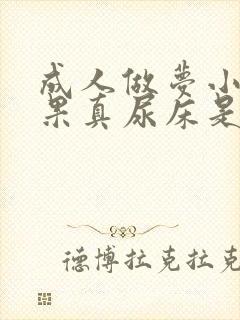 成人做夢小
果真尿床是
德博拉克拉克